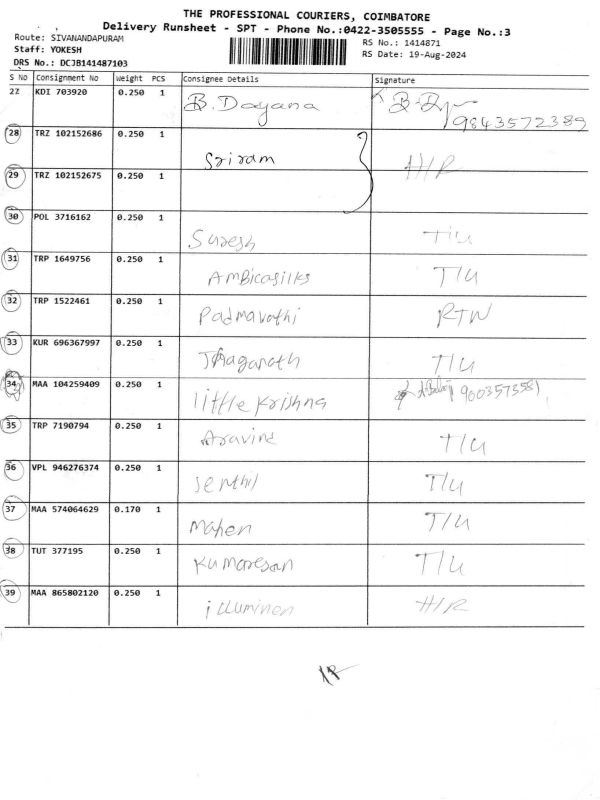 THE PROFESSIONAL COURIERS, COIMBATORE
Delivery Runsheet - SPT - Phone No.:0422-3505555 - Page No.:3
Route: SIVANANDAPURAM
RS No.: 1414871
Staff: YOKESH
RS Date: 19-Aug-2024
DRS No.: DCJB141487103
S No Consignment No Weight PCS Consignee Details Signature
27 KDI 703920 0.250 1 B. Dayana 9843572389
28 TRZ 102152686 0.250 1
Sriram H/R
29 TRZ 102152675 0.250 1
30 POL 3716162 0.250 1 Suresh T/U
31 TRP 1649756 0.250 1 AmBicasilks T/U
32 TRP 1522461 0.250 1 Padmavathi RTN
33 KUR 696367997 0.250 1 Jaganath T/U
34 MAA 104259409 0.250 1 little Krishna 9003573581
35 TRP 7190794 0.250 1 Aravind T/U
36 VPL 946276374 0.250 1 Senthil T/U
37 MAA 574064629 0.170 1 Mahen T/U
38 TUT 377195 0.250 1 Kumaresan T/U
39 MAA 865802120 0.250 1 illuminen H/R